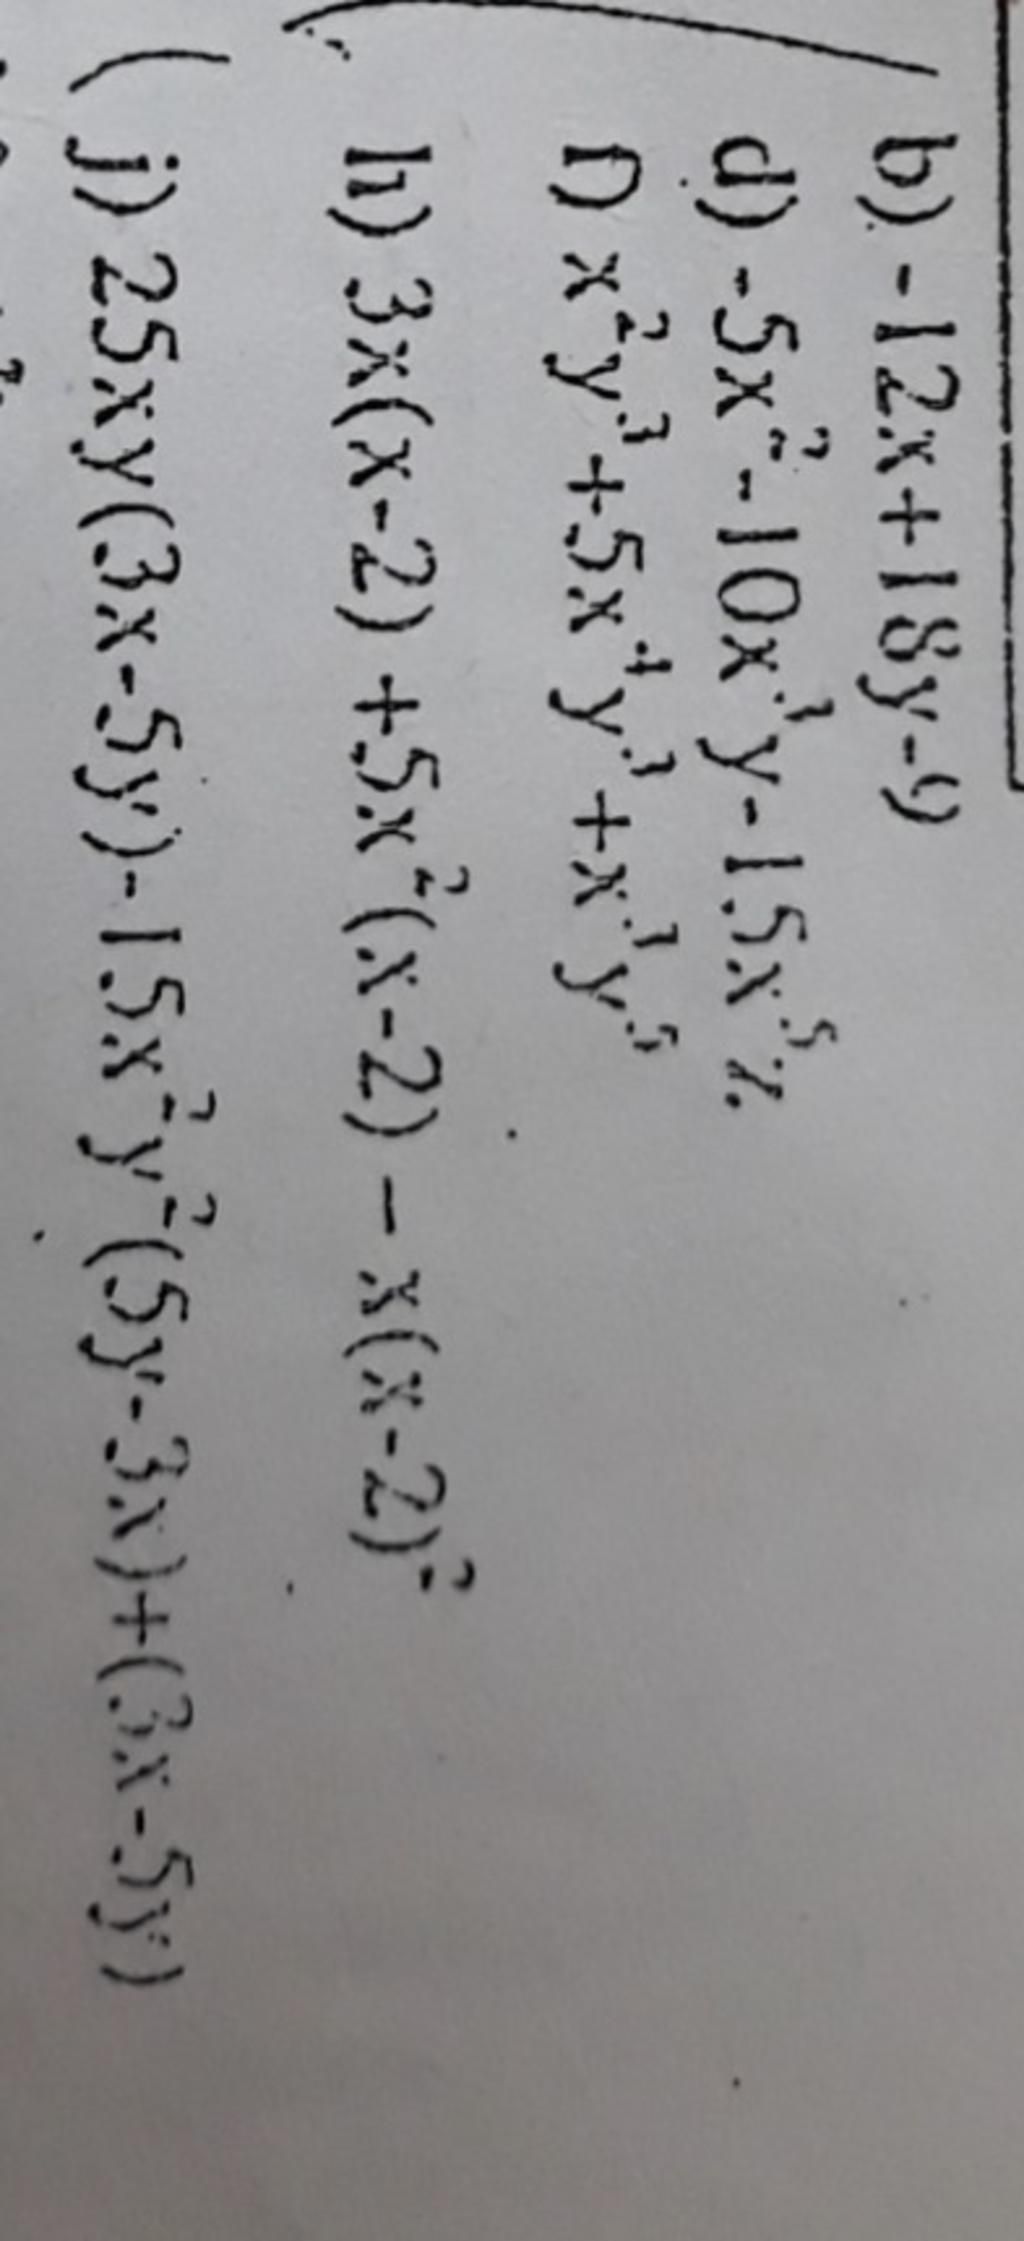 b) -12x+18y-9
d) -5x²-10x³y-15x⁵z
f) x²y³+5x⁴y³+x³y⁵
h) 3x(x-2) +5x²(x-2) – x(x-2)²
j) 25xy(3x-5y)-15x²y²(5y-3x)+(3x-5y)